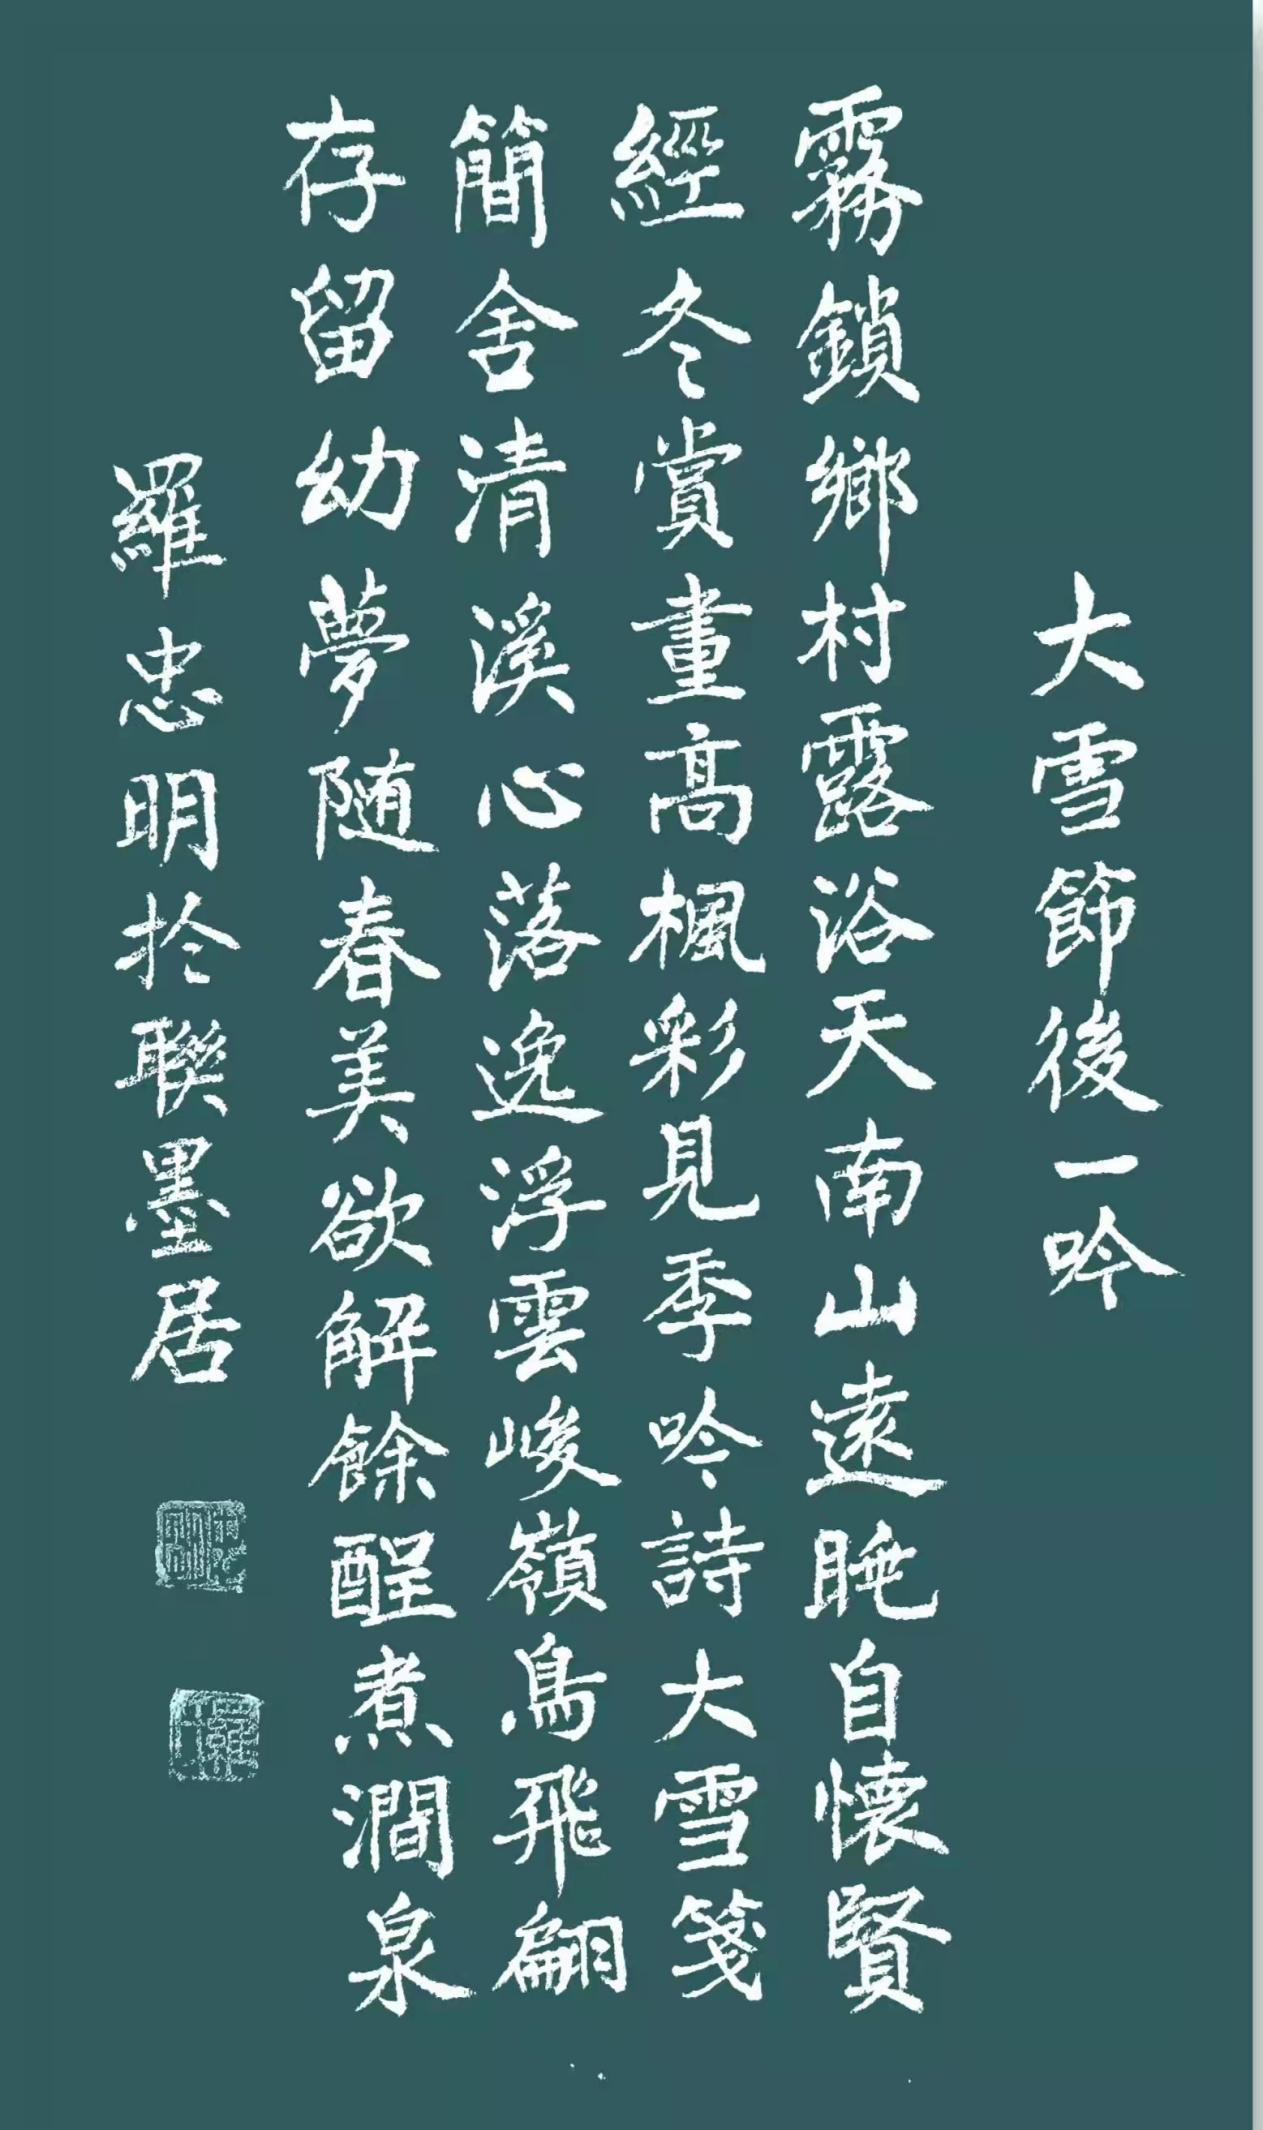 大雪節後一吟
霧鎖鄉村露浴天南山遠眺自懷賢
經冬賞畫高楓彩見季吟詩大雪箋
簡舍清溪心落逸浮雲峻嶺鳥飛翩
存留幼夢随春美欲解餘醒煮澗泉
羅忠明於聯墨居